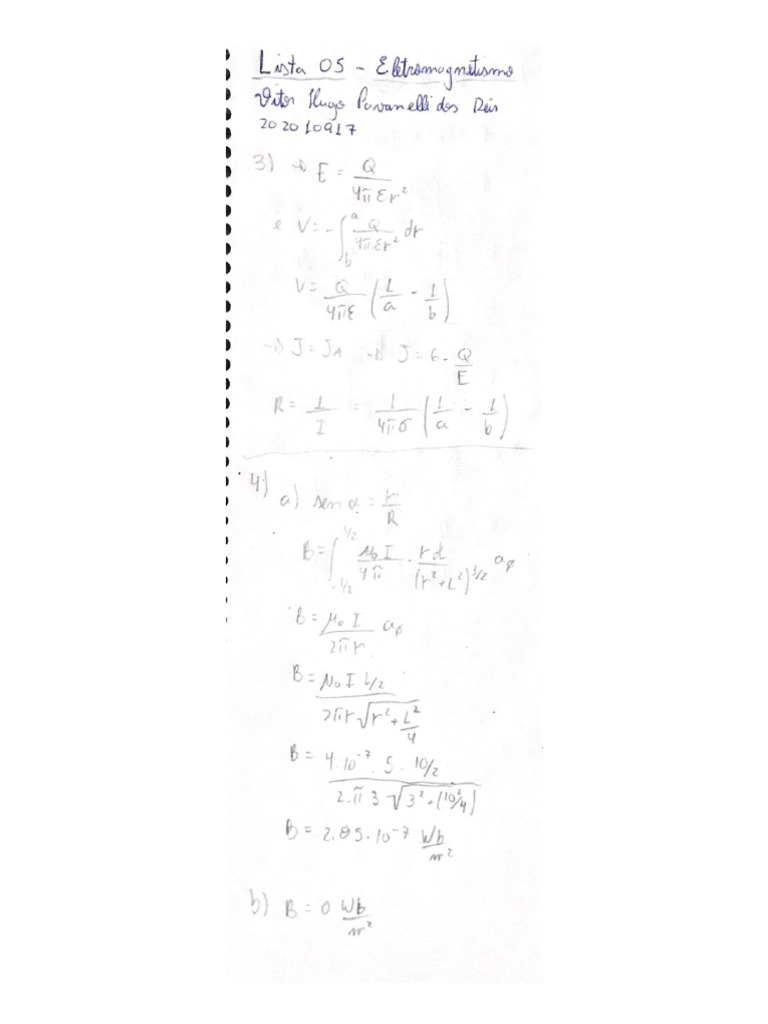 Lista 05 - Eletromagnetismo
Vitor Hugo Pavanelli dos Reis
202010917
3) → E = Q / 4πεr²
e V = -∫_b^a Q / 4πεr² dr
V = Q / 4πε (1/a - 1/b)
→ J = JA → J = 6 · Q / E
R = 1 / I = 1 / 4πσ (1/a - 1/b)
4) a) sen α = r / R
B = ∫_{-1/2}^{1/2} μ₀ I / 4π · r d / (r² + L²)^{3/2} aφ
B = μ₀ I / 2πr aφ
B = μ₀ I L/2 / 2πr √(r² + L²/4)
B = 4.10⁻⁷ . 5 . 10/2 / 2.π 3 √(3² + (10²/4))
B = 2.85.10⁻⁷ Wb / m²
b) B = 0 Wb / m²